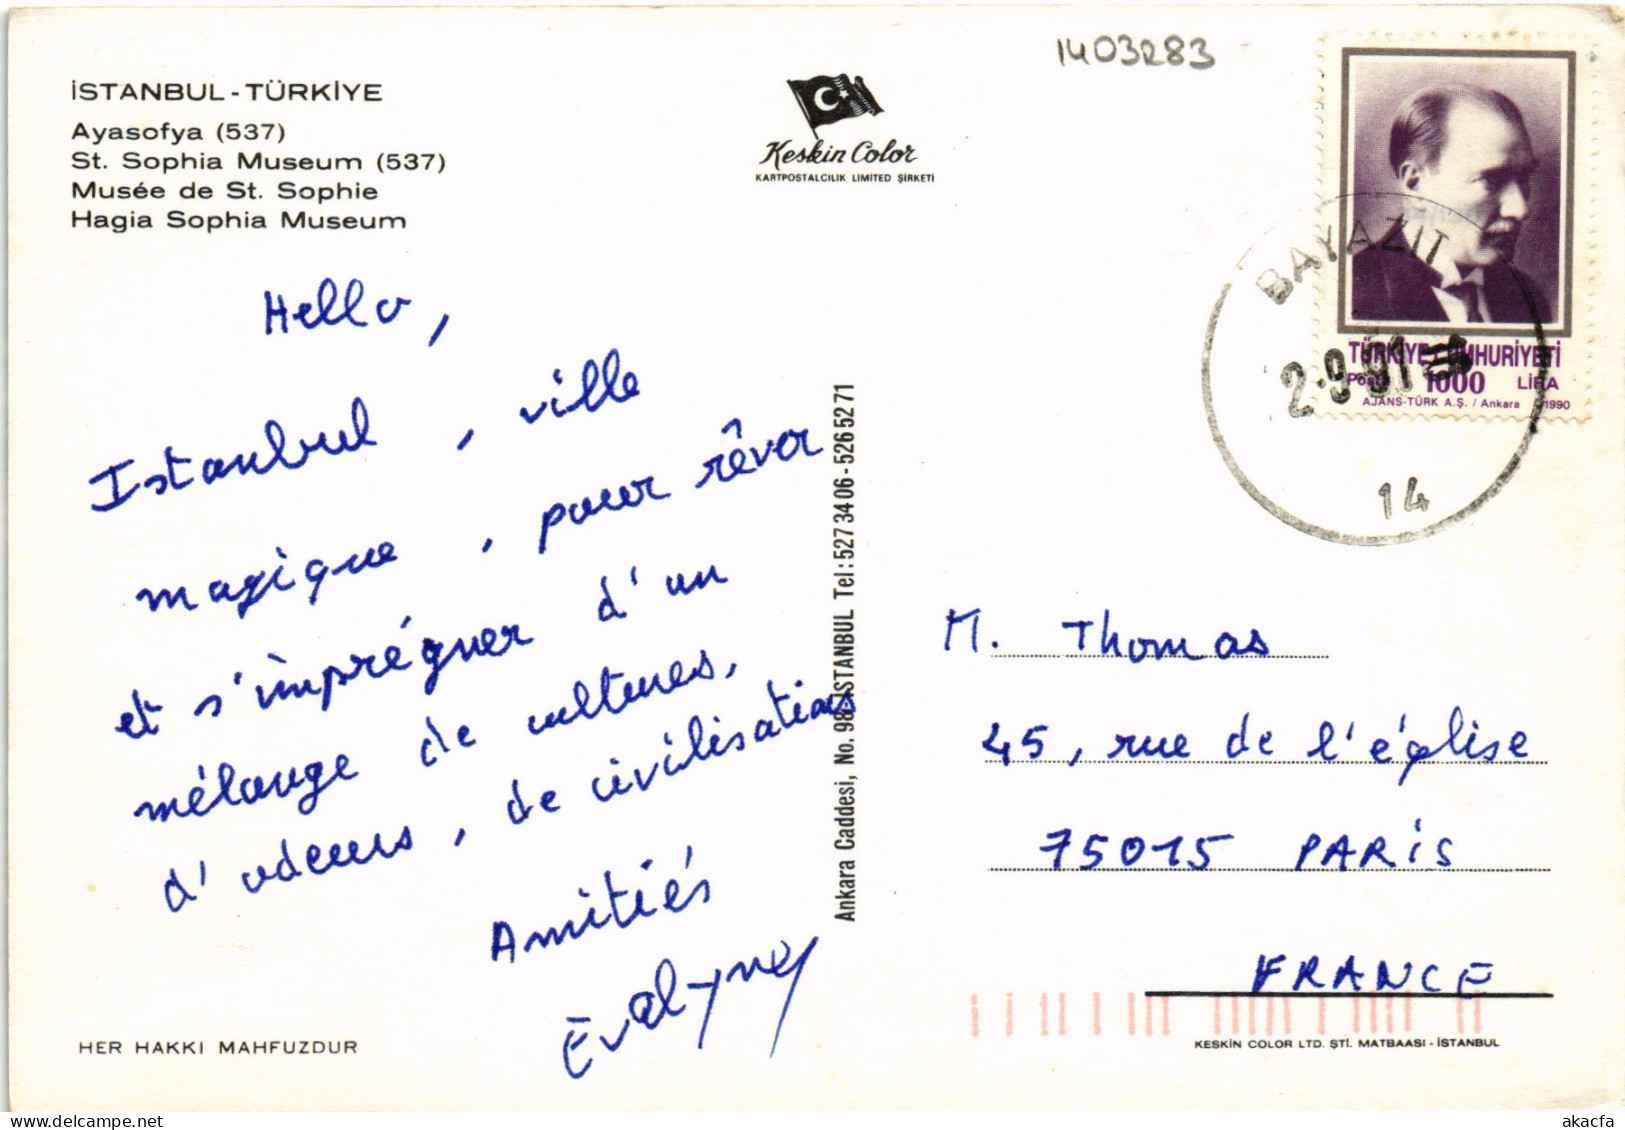 1403283
İSTANBUL - TÜRKİYE
Ayasofya (537)
St. Sophia Museum (537)
Musée de St. Sophie
Hagia Sophia Museum
Keskin Color
KARTPOSTALCILIK LIMITED ŞİRKETİ
BAYAZIT
2.9.91
14
TÜRKİYE CUMHURİYETİ
Posta 1000 LİRA
AJANS-TÜRK A.Ş. / Ankara 1990
Hello,
Istanbul, ville
magique, pour rêver
et s'imprégner d'un
mélange de cultures,
d'odeurs, de civilisations
Amitiés
Evelyne
Ankara Caddesi, No. 98 İSTANBUL Tel: 527 34 06 - 526 52 71
M. Thomas
45, rue de l'église
75015 PARIS
FRANCE
HER HAKKI MAHFUZDUR
KESKİN COLOR LTD. ŞTİ. MATBAASI - İSTANBUL
akacfa